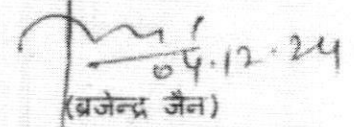 04.12.24
(ब्रजेन्द्र जैन)